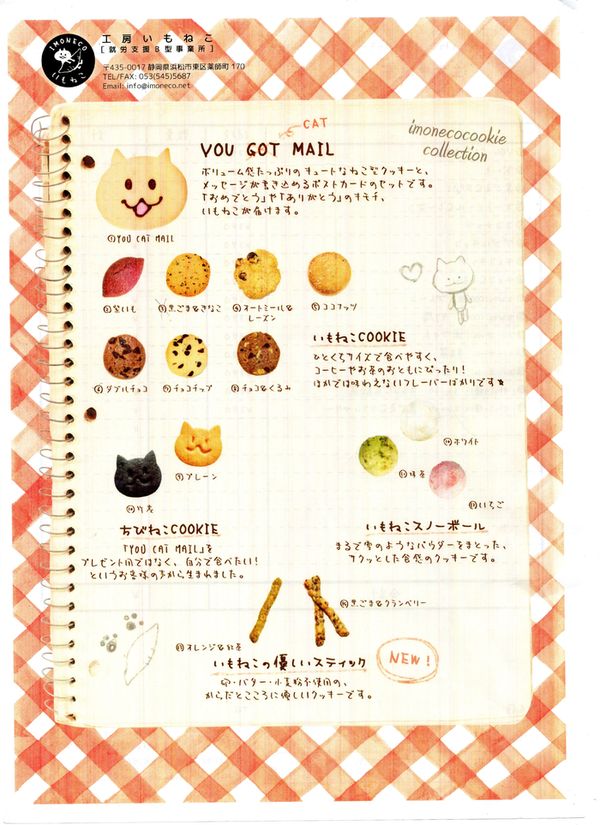 IMONECO
いもねこ
工房いもねこ
[就労支援B型事業所]
〒435-0017 静岡県浜松市東区薬師町 170
TEL/FAX: 053(545)5687
Email: info@imoneco.net
imonecocookie
collection
CAT
YOU GOT MAIL
ボリューム感たっぷりのキュートなねこ型クッキーと、
メッセージが書き込めるポストカードのセットです。
「おめでとう」や「ありがとう」のキモチ、
いもねこが届けます。
①YOU CAT MAIL
②紫いも
③黒ごま&きなこ
④オートミール&
レーズン
⑤ココナッツ
⑥ダブルチョコ
⑦チョコチップ
⑧チョコ&くるみ
いもねこCOOKIE
ひとくちサイズで食べやすく、
コーヒーやお茶のおともにぴったり!
ほかでは味わえないフレーバーばかりです★
⑨プレーン
⑩竹炭
ちびねこCOOKIE
「YOU CAT MAIL」を
プレゼント用ではなく、自分で食べたい!
というお客様の声から生まれました。
ホワイト
抹茶
いちご
いもねこスノーボール
まるで雪のようなパウダーをまとった、
サクッとした食感のクッキーです。
オレンジ&紅茶
黒ごま&クランベリー
いもねこの優しいスティック
NEW!
卵・バター・小麦粉不使用の、
からだとこころに優しいクッキーです。